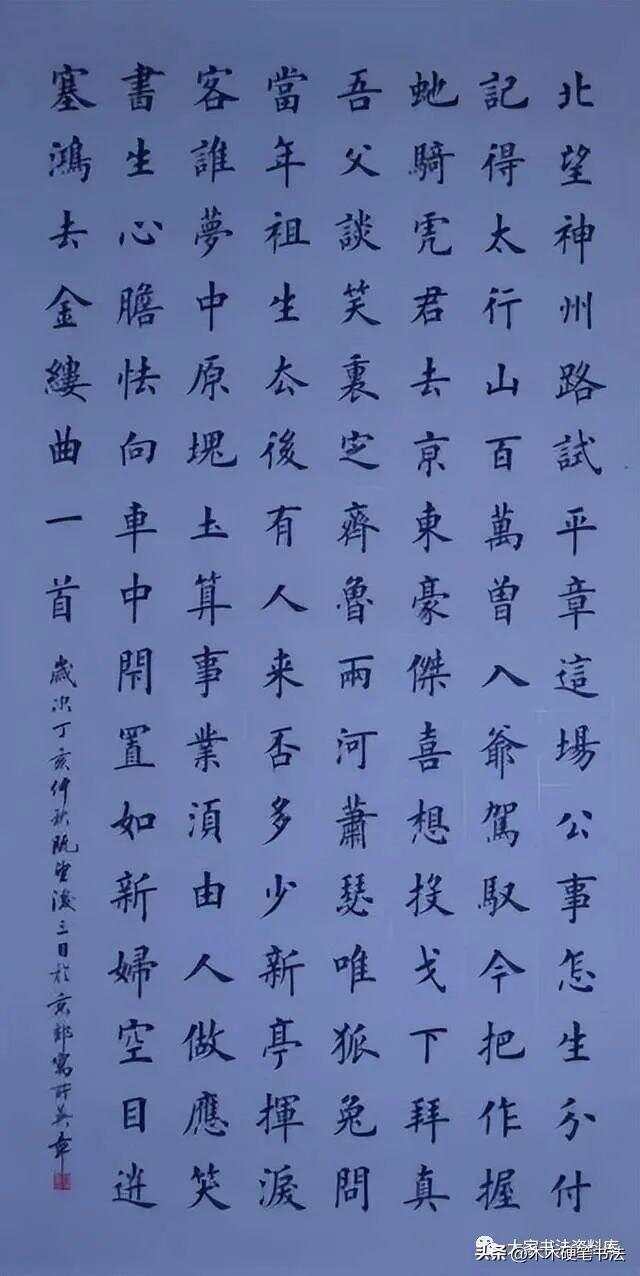 北望神州路試平章這場公事怎生分付
記得太行山百萬曾入爺駕馭今把作握
虵騎虎君去京東豪傑喜想投戈下拜真
吾父談笑裏定齊魯兩河蕭瑟唯狐兔問
當年祖生去後有人来否多少新亭揮淚
客誰夢中原塊土算事業須由人做應笑
書生心膽怯向車中閉置如新婦空目送
塞鴻去金縷曲一首
歲次丁亥仲秋既望後三日於京
大家书法资料库
头条 @木木硬笔书法